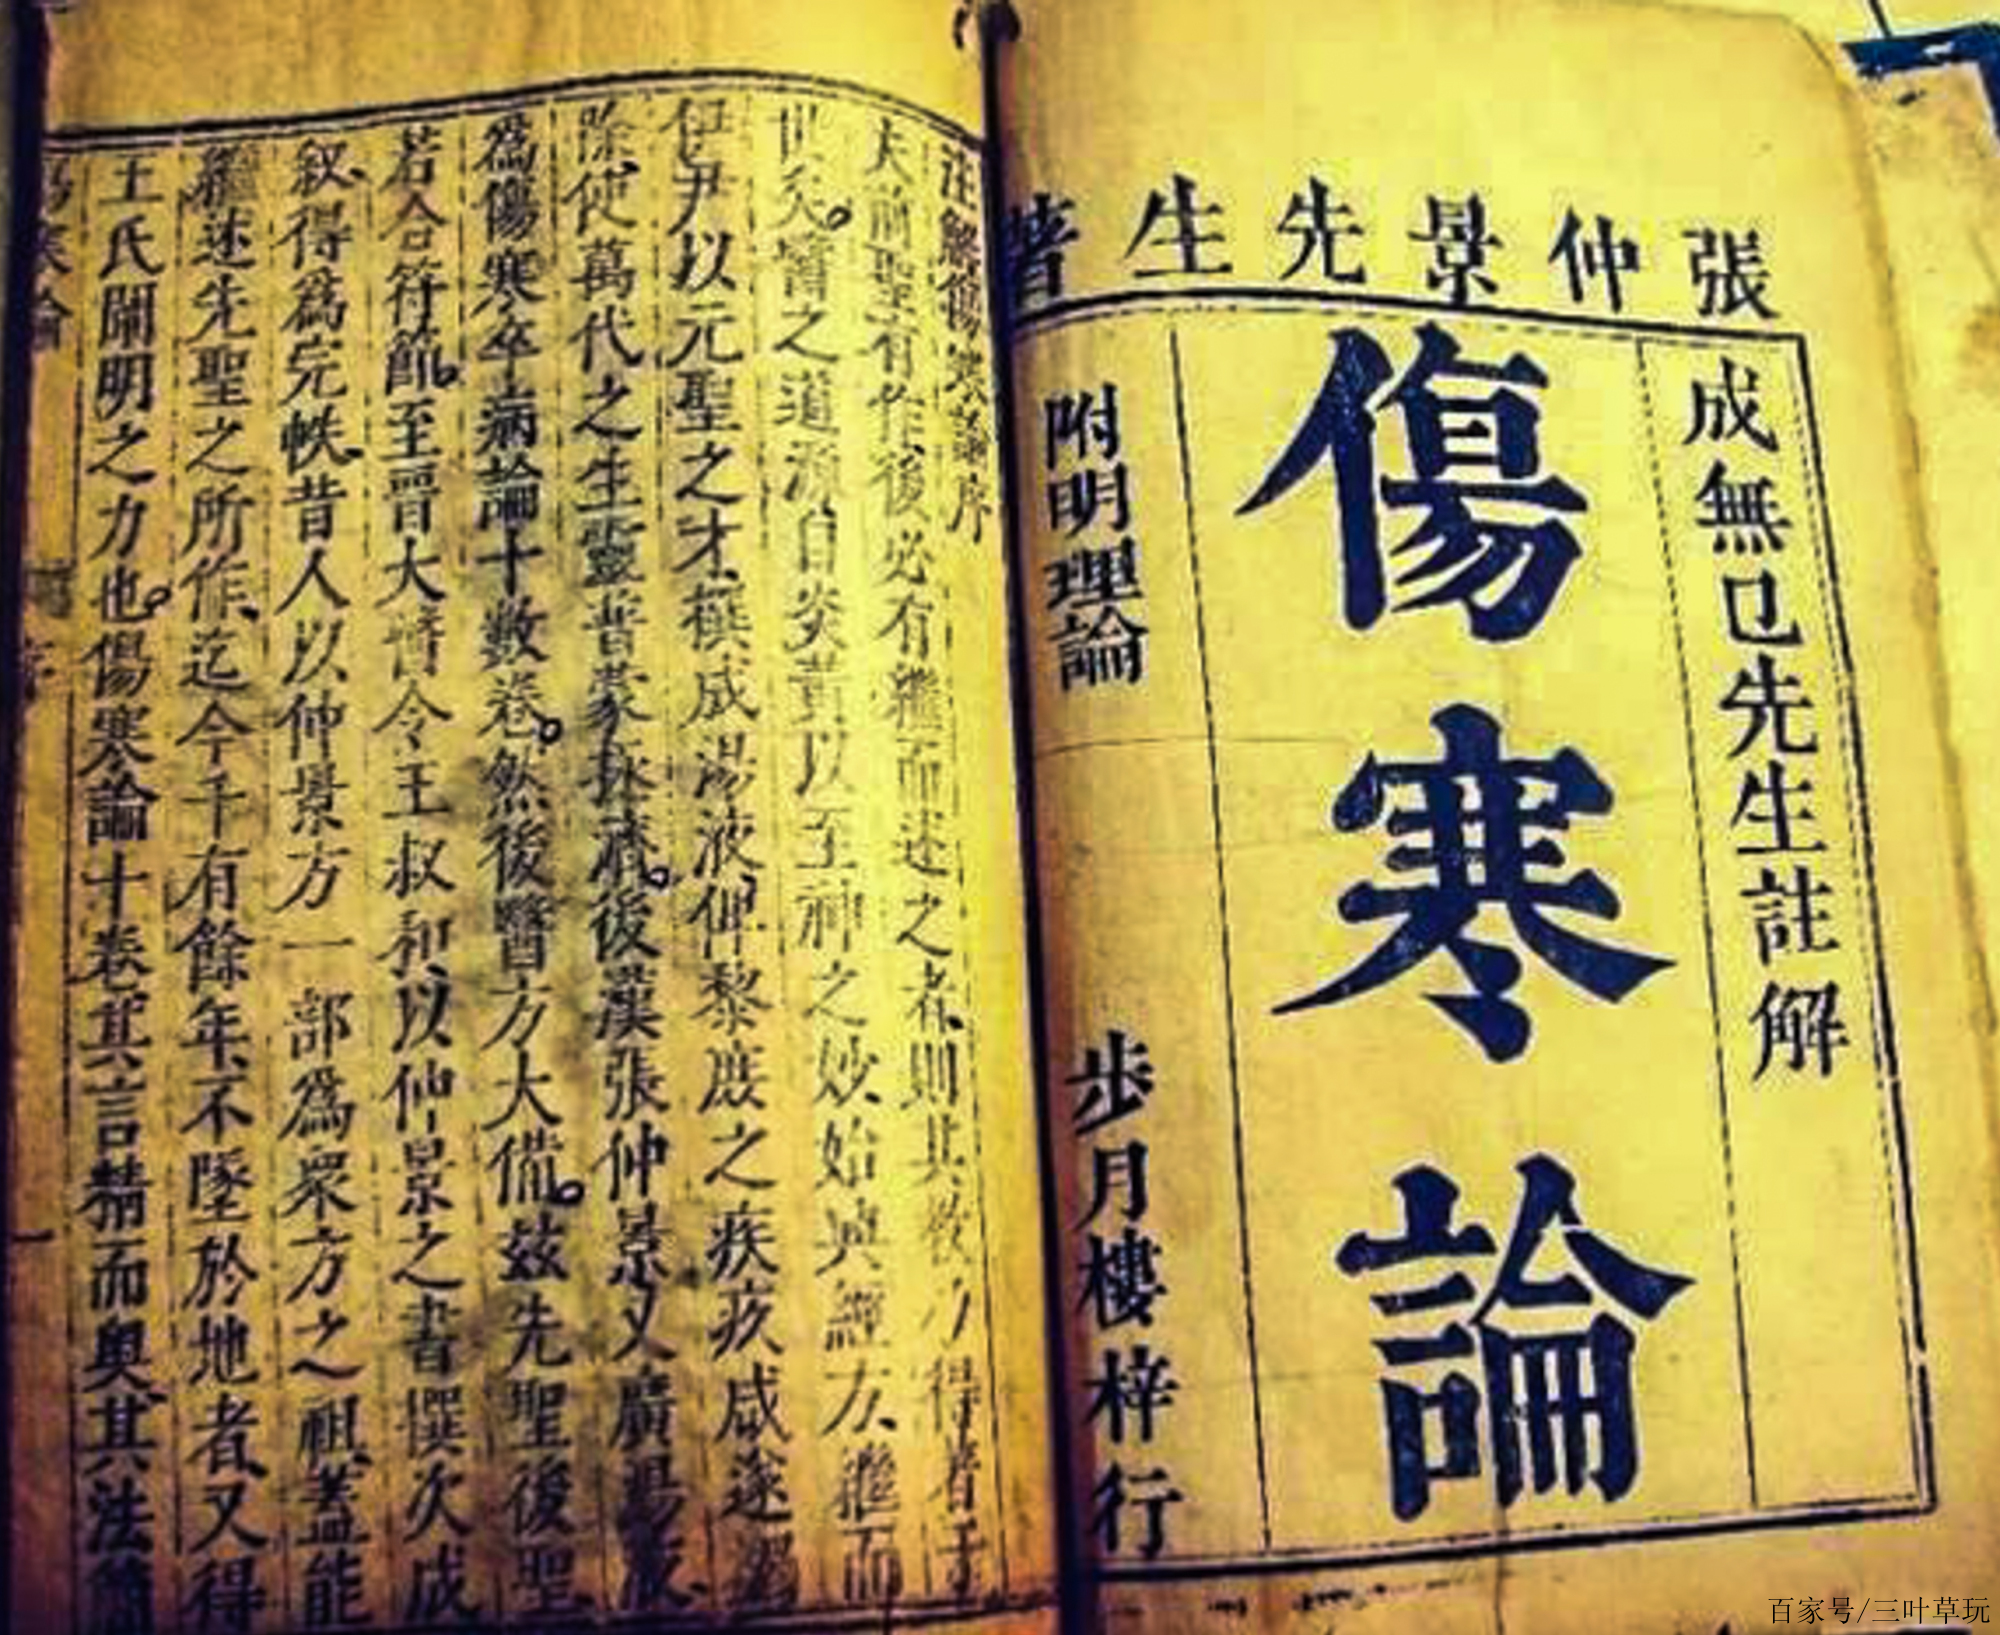 張仲景先生著
成無已先生註解
傷寒論
附明理論
步月樓梓行
注解傷寒論序
夫前聖有作後必有繼而述之者則其教乃得著于
世矣醫之道源自炎黃以至神之妙始興經方繼而
伊尹以元聖之才撰成湯液俾黎庶之疾疚咸遂蠲
除使萬代之生靈普蒙拯濟後漢張仲景又廣湯液
爲傷寒卒病論十數卷然後醫方大備茲先聖後聖
若合符節至晉大醫令王叔和以仲景之書撰次成
叙得爲完帙昔人以仲景方一部爲衆方之祖蓋能
繼述先聖之所作迄今千有餘年不墜於地者又得
王氏闡明之力也傷寒論十卷其言精而奥其法簡
百家号/三叶草玩